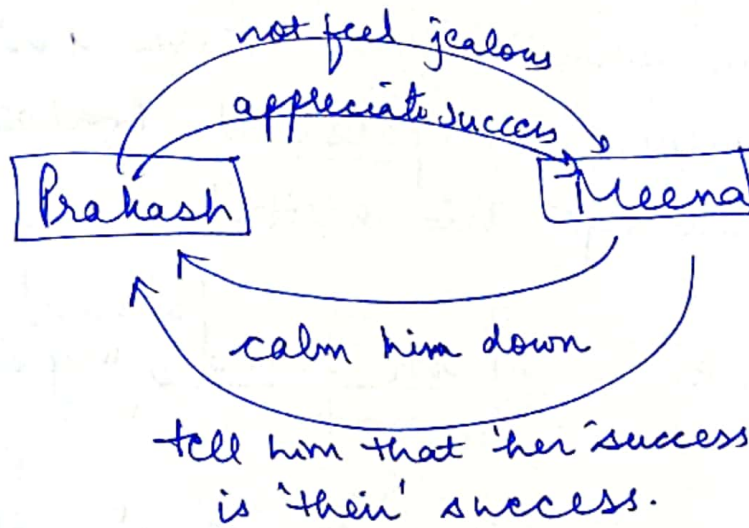 not feel jealous
appreciate success
Prakash
Meena
calm him down
tell him that 'her' success
is 'their' success.